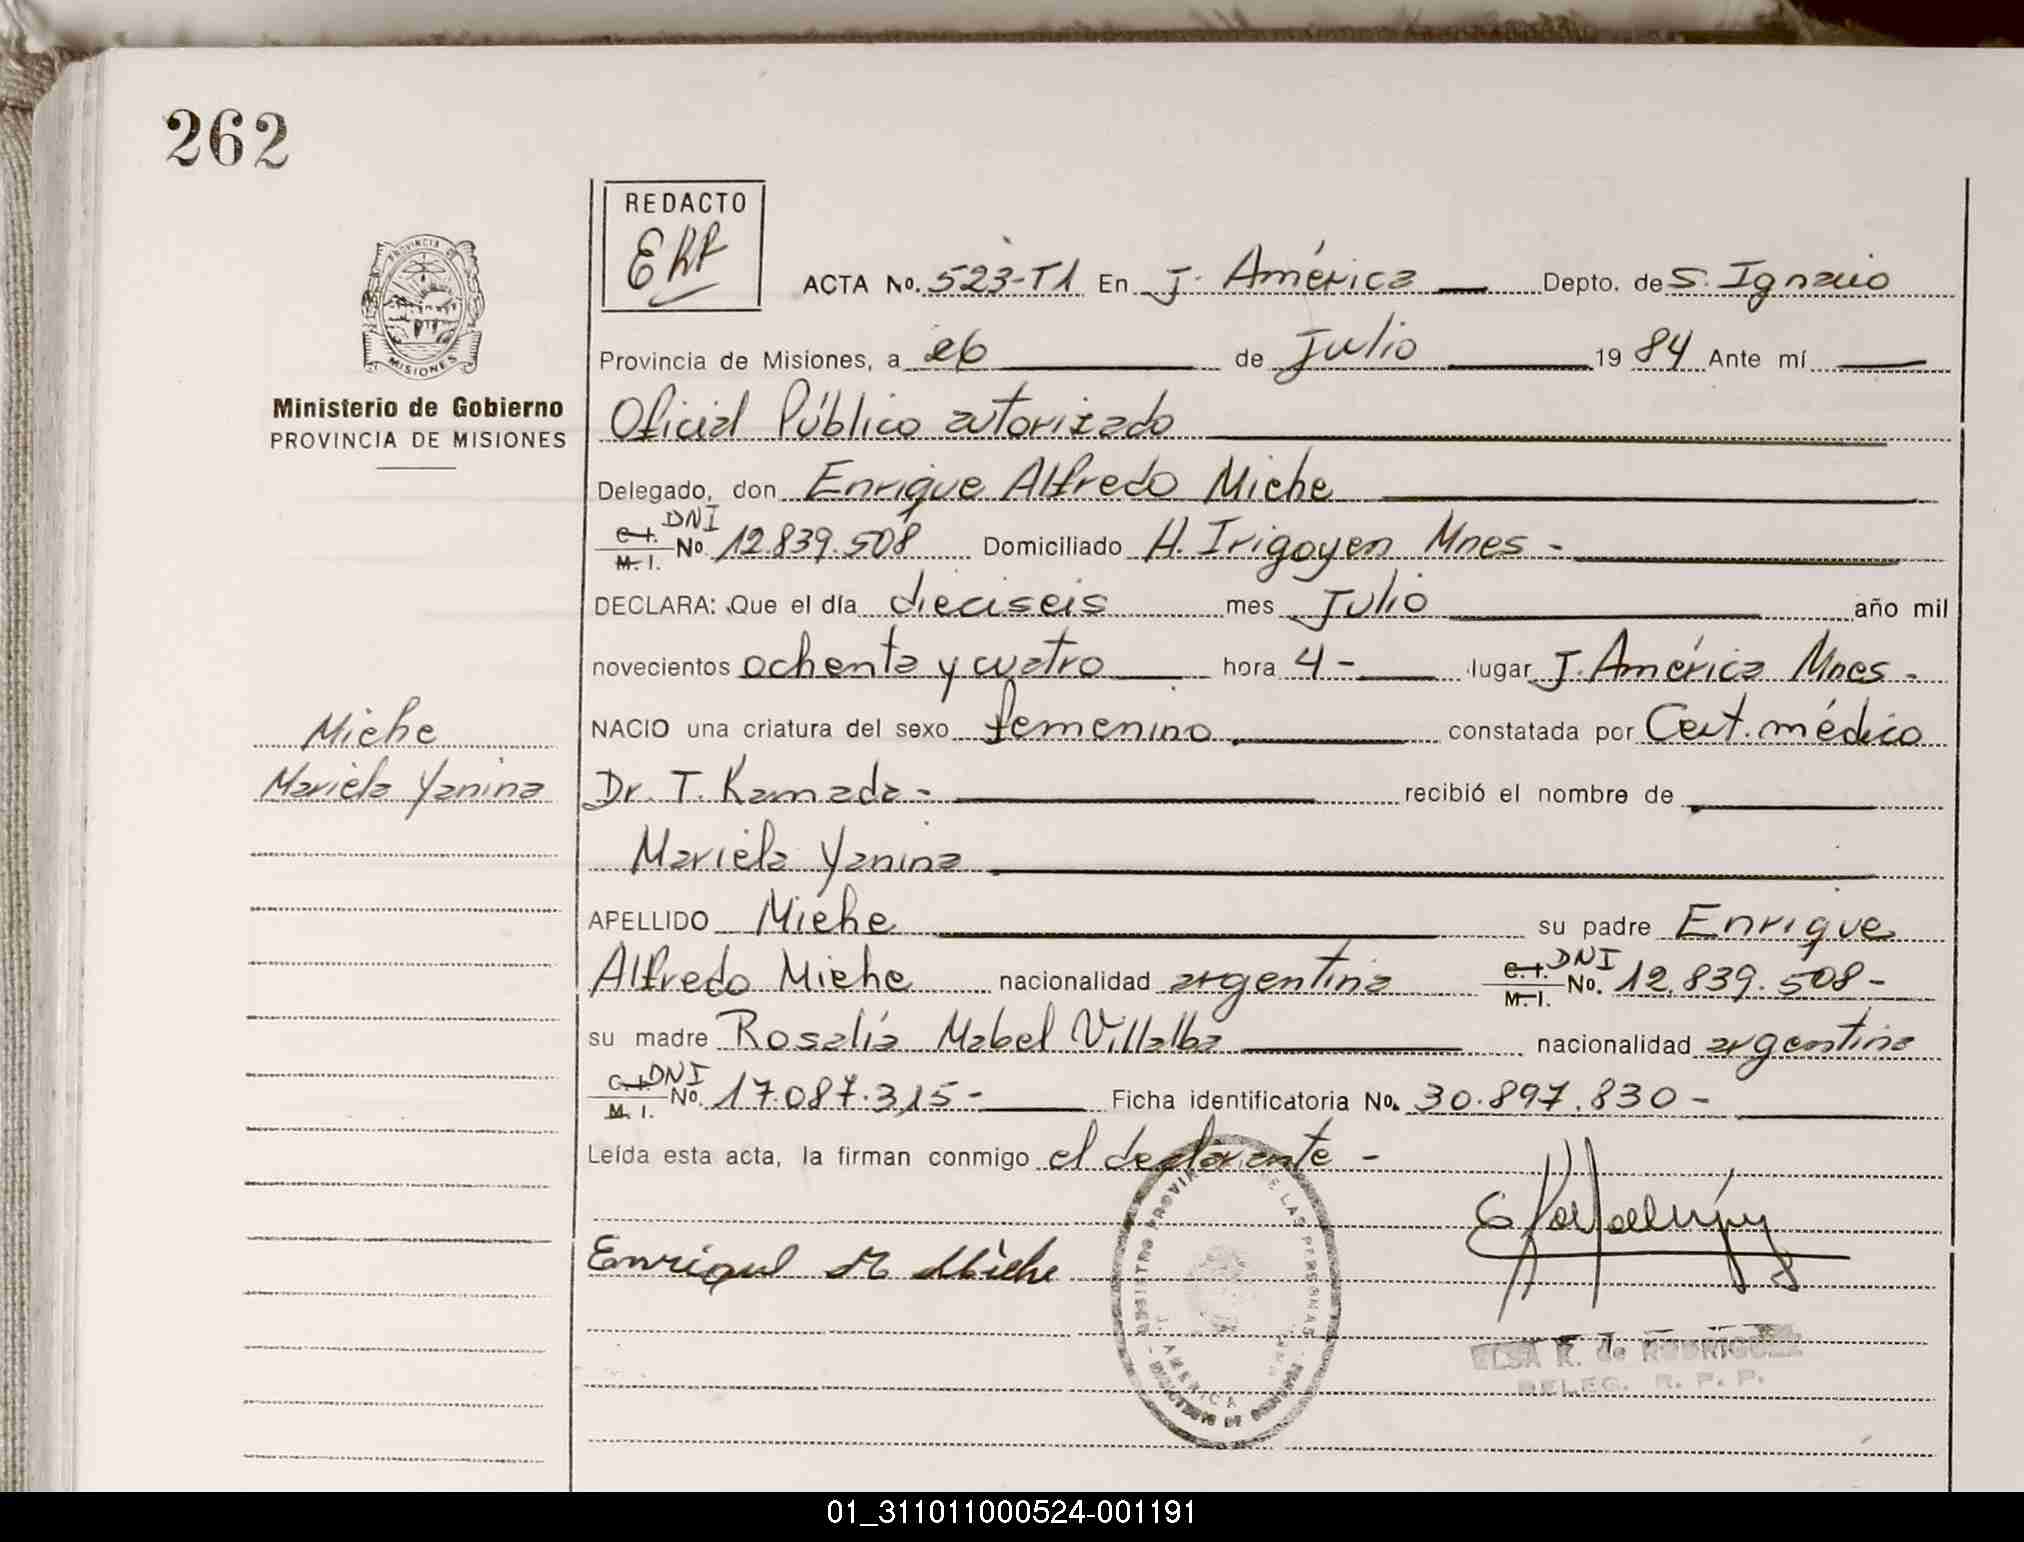 262
REDACTO
ERR
ACTA No. 523-T1 En J. América Depto. de S. Ignacio
Provincia de Misiones, a 26 de Julio 1984 Ante mí
Oficial Público autorizado
Delegado, don Enrique Alfredo Miehe
C. I. DNI
M. I. No. 12.839.508 Domiciliado H. Irigoyen Mnes -
DECLARA: Que el día dieciseis mes Julio año mil
novecientos ochenta y cuatro hora 4 - lugar J. América Mnes -
NACIO una criatura del sexo femenino constatada por Cert. médico
Dr. T. Kamada - recibió el nombre de
Mariela Yanina
APELLIDO Miehe su padre Enrique
Alfredo Miehe nacionalidad argentina C. I. M. I. DNI No. 12.839.508 -
su madre Rosalía Mabel Villalba nacionalidad argentina
C. I. M. I. DNI No. 17.087.315 - Ficha identificatoria No. 30.897.830 -
Leída esta acta, la firman conmigo el declarante -
Enrique A Miehe
ELSA R. de RODRIGUEZ
DELEG. R. P. P.
REGISTRO PROVINCIAL DE LAS PERSONAS
J. AMERICA
MINISTERIO DE GOBIERNO
PROVINCIA DE
MISIONES
Ministerio de Gobierno
PROVINCIA DE MISIONES
Miehe
Mariela Yanina
01_311011000524-001191